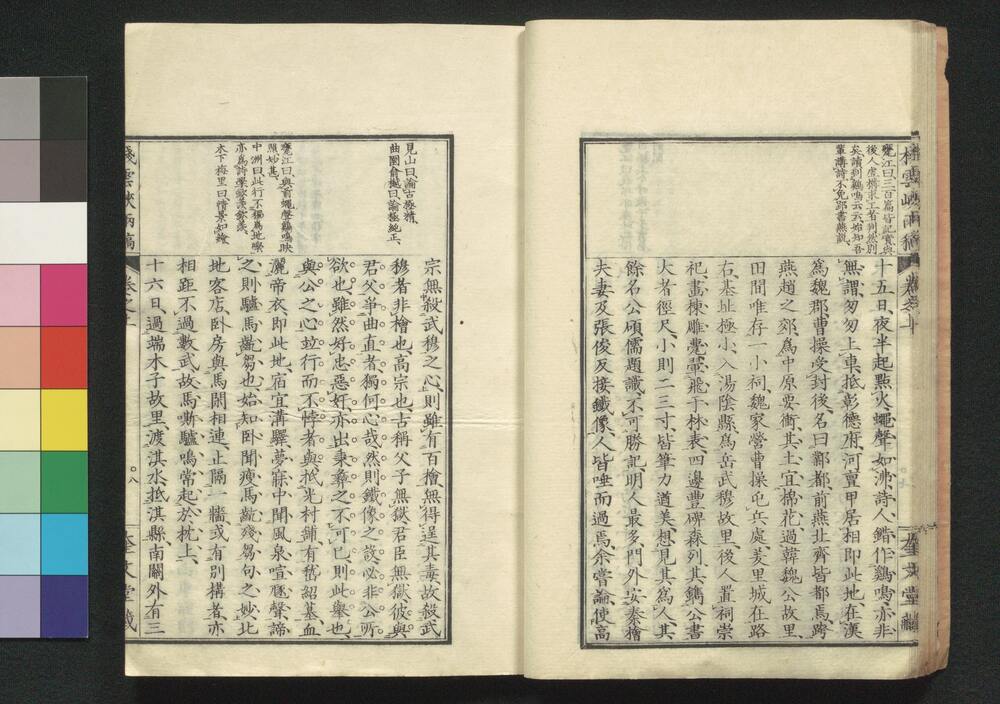 棧雲峽雨稿
甕江曰三百篇皆記實與
後人虛構求工者判然別
矣讀到鷄鳴云云始知吾
輩講詩不免郢書燕說
十五日夜半起點火蠅聲如沸詩人錯作鷄鳴亦非
無謂匆匆上車抵彰德府河亶甲居相即此地在漢
爲魏郡曹操受封後名曰鄴都前燕北齊皆都焉跨
燕趙之郊爲中原要衝其土宜棉花過韓魏公故里
田間唯存一小祠魏家營曹操屯兵處羑里城在路
右基址極小入湯陰縣爲岳武穆故里後人置祠崇
祀畫棟雕甍翬飛于林表四邊豐碑森列其鐫公書
大者徑尺小則二三寸皆筆力遒美想見其爲人其
餘名公碩儒題識不可勝記明人最多門外安秦檜
夫妻及張俊反接鐵像人皆唾而過焉余嘗論使高
奎文堂藏
見山曰論古極精
曲園俞樾曰論極純正
甕江曰與前蠅聲鷄鳴映
照妙甚
中洲曰此行不獨爲地學
亦爲詩學歆羨歆羨
木下梅里曰情景如繪
宗無殺武穆之心則雖有百檜無得逞其毒故殺武
穆者非檜也高宗也古稱父子無獄君臣無獄彼與
君父爭曲直者獨何心哉然則鐵像之設必非公所
欲也雖然好忠惡奸亦出秉彝之不可已則此舉也
與公之心竝行而不悖者與抵光村鋪有嵇紹墓血
灑帝衣即此地宿宜溝驛夢寐中聞風泉喧豗聲諦
之則驢馬齕芻也始知臥聞瘦馬齕殘芻句之妙北
地客店臥房與馬閑相連止隔一牆或有別構者亦
相距不過數武故馬嘶驢鳴常起於枕上
十六日過端木子故里渡淇水抵淇縣南關外有三
棧雲峽雨稿
卷之上
○八
奎文堂藏